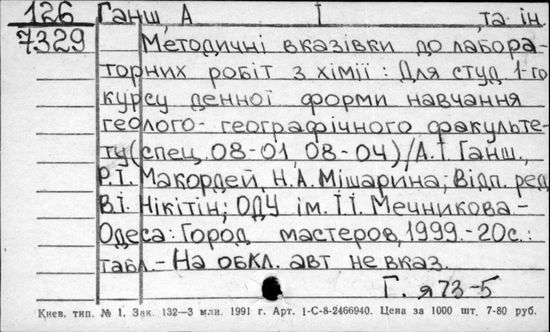 126 Ганш, А І ,та ін.
7329 Методичні вказівки до лабора-
торних робіт з хімії : Для студ 1-го
курсу денної форми навчання
геолого- географічного факульте-
ту(спец. 08-01, 08-04)/А.І Ганш.,
Р.І. Макордей, Н.А.Мішарина; Відп. ред
В.І. Нікітін; ОДУ ім. І.І. Мечникова -
Одеса: Город мастеров, 1999.-20с.:
табл.- На обкл. авт не вказ.
Г. я73-5
Киев. тип. № 1. Зак. 132—3 млн. 1991 г. Арт. 1-С-8-2466940. Цена за 1000 шт. 7-80 руб.